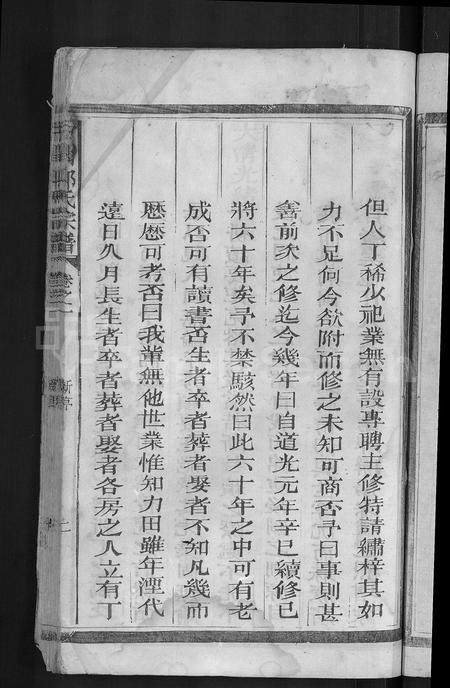 但人丁稀少祀業無有設專聘主修特請繡梓其如
力不足何今欲附而修之未知可商否予曰事則甚
善前次之修迄今幾年曰自道光元年辛巳續修已
將六十年矣予不禁駭然曰此六十年之中可有老
成否可有讀書否生者卒者葬者娶者不知凡幾而
歷歷可考否曰我輩無他世業惟知力田雖年湮代
遠日久月長生者卒者葬者娶者各房之人立有丁
氏宗譜
卷之
新序
二